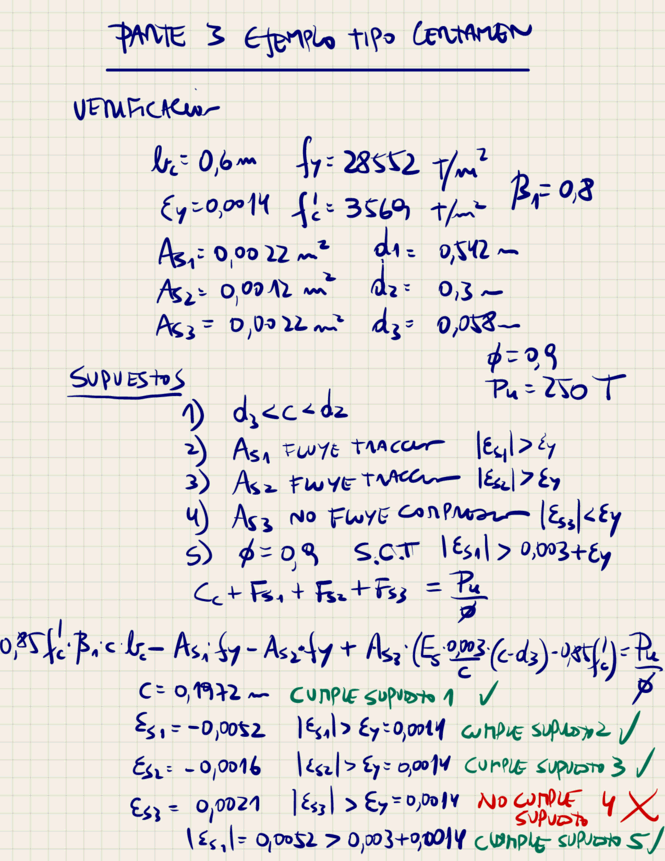 PARTE 3 EJEMPLO TIPO CERTAMEN
VERIFICACION
bc = 0,6 m fy = 28552 T/m²
εy = 0,0014 f'c = 3569 T/m² β1 = 0,8
As1 = 0,0022 m² d1 = 0,542 m
As2 = 0,0012 m² d2 = 0,3 m
As3 = 0,0022 m² d3 = 0,058 m
ϕ = 0,9
Pu = 250 T
SUPUESTOS
1) d3 < c < d2
2) As1 FLUYE TRACCION |εs1| > εy
3) As2 FLUYE TRACCION |εs2| > εy
4) As3 NO FLUYE COMPRESION |εs3| < εy
5) ϕ = 0,9 S.C.T |εs1| > 0,003 + εy
Cc + Fs1 + Fs2 + Fs3 = Pu/ϕ
0,85 f'c · β1 · c · bc - As1 · fy - As2 · fy + As3 · (Es · 0,003/c · (c - d3) - 0,85 f'c) = Pu/ϕ
c = 0,1972 m CUMPLE SUPUESTO 1 ✓
εs1 = -0,0052 |εs1| > εy = 0,0014 CUMPLE SUPUESTO 2 ✓
εs2 = -0,0016 |εs2| > εy = 0,0014 CUMPLE SUPUESTO 3 ✓
εs3 = 0,0021 |εs3| > εy = 0,0014 NO CUMPLE SUPUESTO 4 ✗
|εs1| = 0,0052 > 0,003 + 0,0014 CUMPLE SUPUESTO 5 ✓